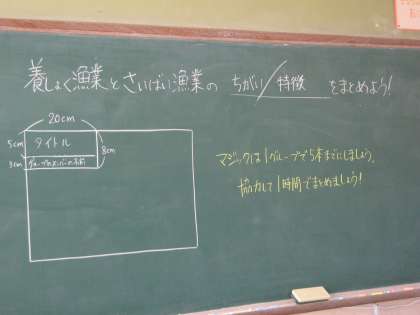 養しょく漁業とさいばい漁業の ちがい/特徴 をまとめよう!
20cm
5cm タイトル
3cm グループのメンバーの名前
8cm
マジックは1グループで5本までにしましょう。
協力して1時間でまとめましょう!